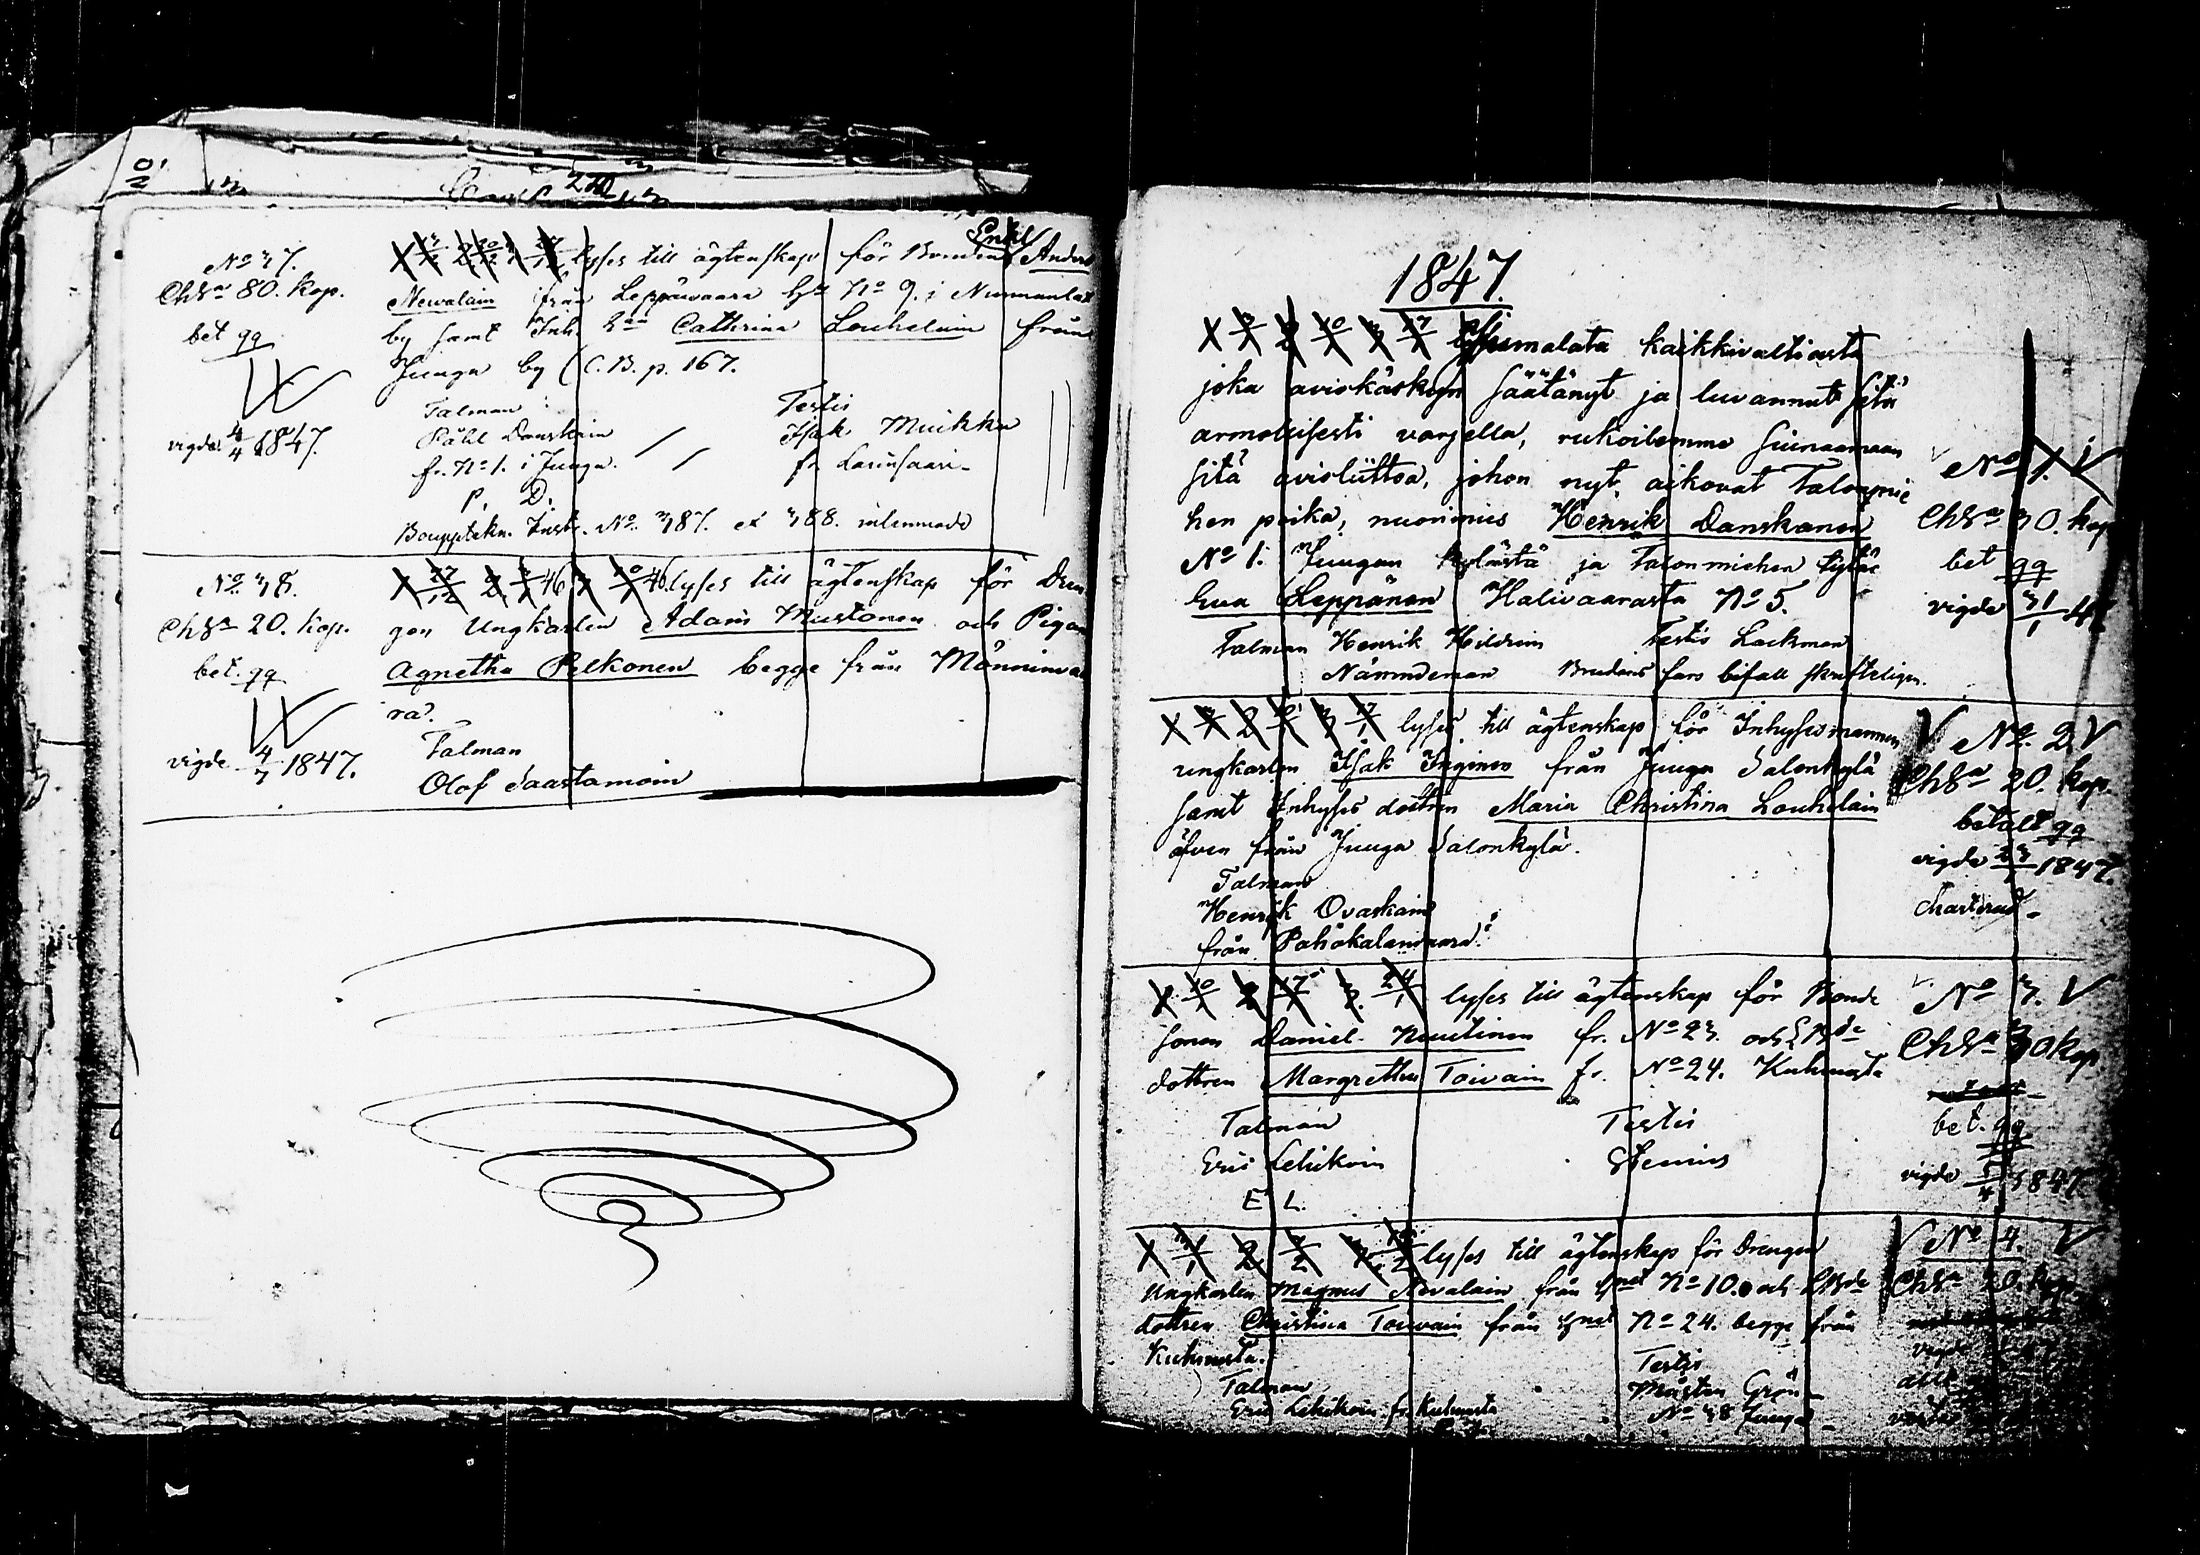 No 37.
Chsa 80. kop.
bet qq
vigde 4/4 1847.
lyses till ägtenskap för Bonden Enkl Anders
Newalain från Leppäwaara hst No 9. i Nurmanlax
by samt Inh. Catthrina Louhelain från
Juuga by (C.B. p. 167.
Talman
Påhl Danskain
fr. No 1. i Juuga.
P. D.
Testis
Isak Muikku
fr Larinsaari
Bouppteckn. Instr. No. 387. et 388. inlemnade
No 38.
Chsa 20. kop.
bet. qq
vigde 4/7 1847.
lyses till ägtenskap för Dren
gen Ungkarlen Adam Mustonen och Pigan
Agnetha Pelkonen begge från Månninwa
ra.
Talman
Olof Saastamoin
1847.
kaikkivaltiasta
joka avioskäskyn säätänyt ja luvannut sitä
armollisesti varjella, rukoilemme siunaamaan
sitä avioliittoa, johon nyt aikovat Talonmie
hen poika, nuorimies Henrik Danskanen
No 1. Juugan kylästä ja Talonmiehen tytär
Eva Leppänen Halivaarasta No 5.
Talman Henrik Hildrein
Nämndeman
Testis Lackman
Brudens fars bifall skrifteligen.
No 1.
Chsa 30. kop
bet qq
vigde 31/1 47
lyses till ägtenskap för Inhysesmannen
ungkarlen Isak Inginen från Juuga Salonkylä
samt Inhyses dottren Maria Christina Louhelain
äfven från Juuga Salonkylä.
Talman
Henrik Ovaskain
från Pahakalanvaara.
No. 2.
Chsa 20. kop.
betalt qq
vigde 1847.
lyses till ägtenskap för Bonde
sonen Daniel Nuutinen fr. No 23. och Bde
dottren Margretha Toivain fr. No 24. Kuhnusta
Talman
Eric Lehikoin
E L.
Testis
Stenius
No 3.
Chsa 30 kop
bet. qq
vigde 1847
lyses till ägtenskap för Drengen
Ungkarlen Magnus Nevalain från hmt No 10. och Bde
dottren Christina Toivain från hmt No 24. begge från
Kuhnusta.
Talman
Eric Lehikoin fr. Kuhnusta
Testis
Mårten Grön
No 38 Juuga
No 4.
Chsa 20. kop